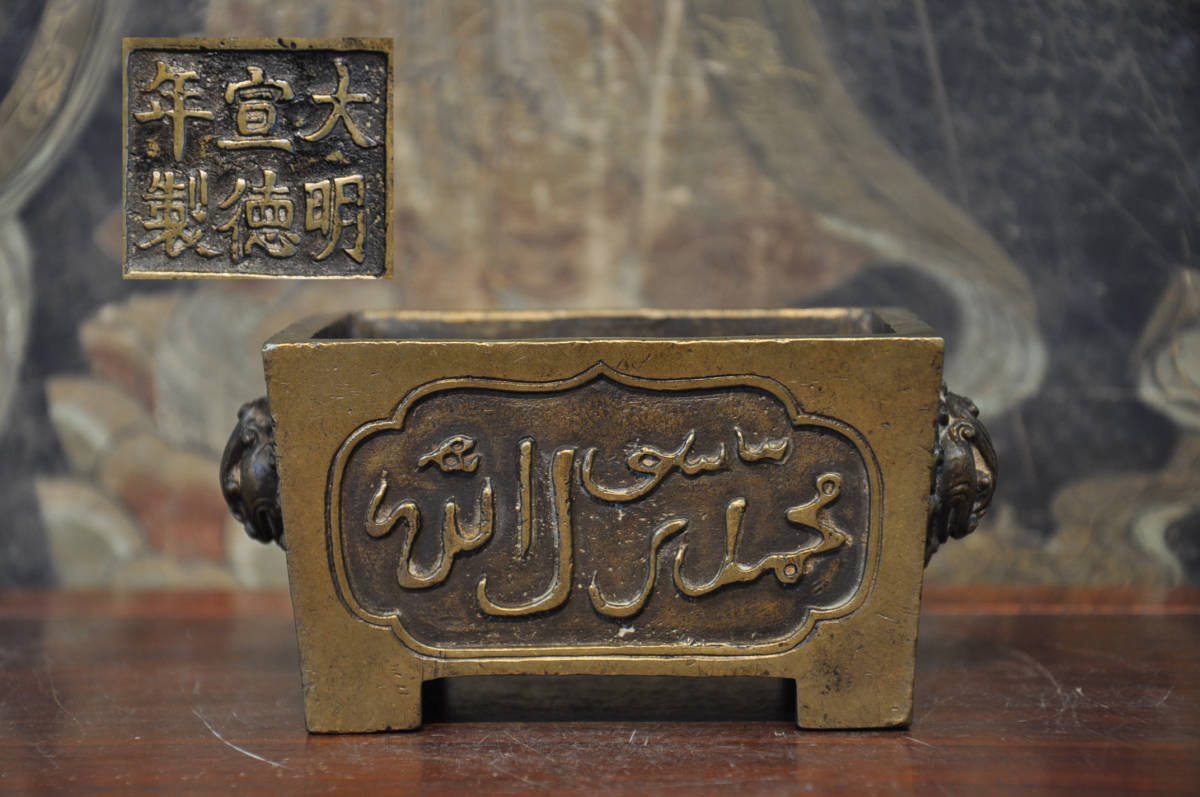 大明
宣德
年製
محمد رسول الله